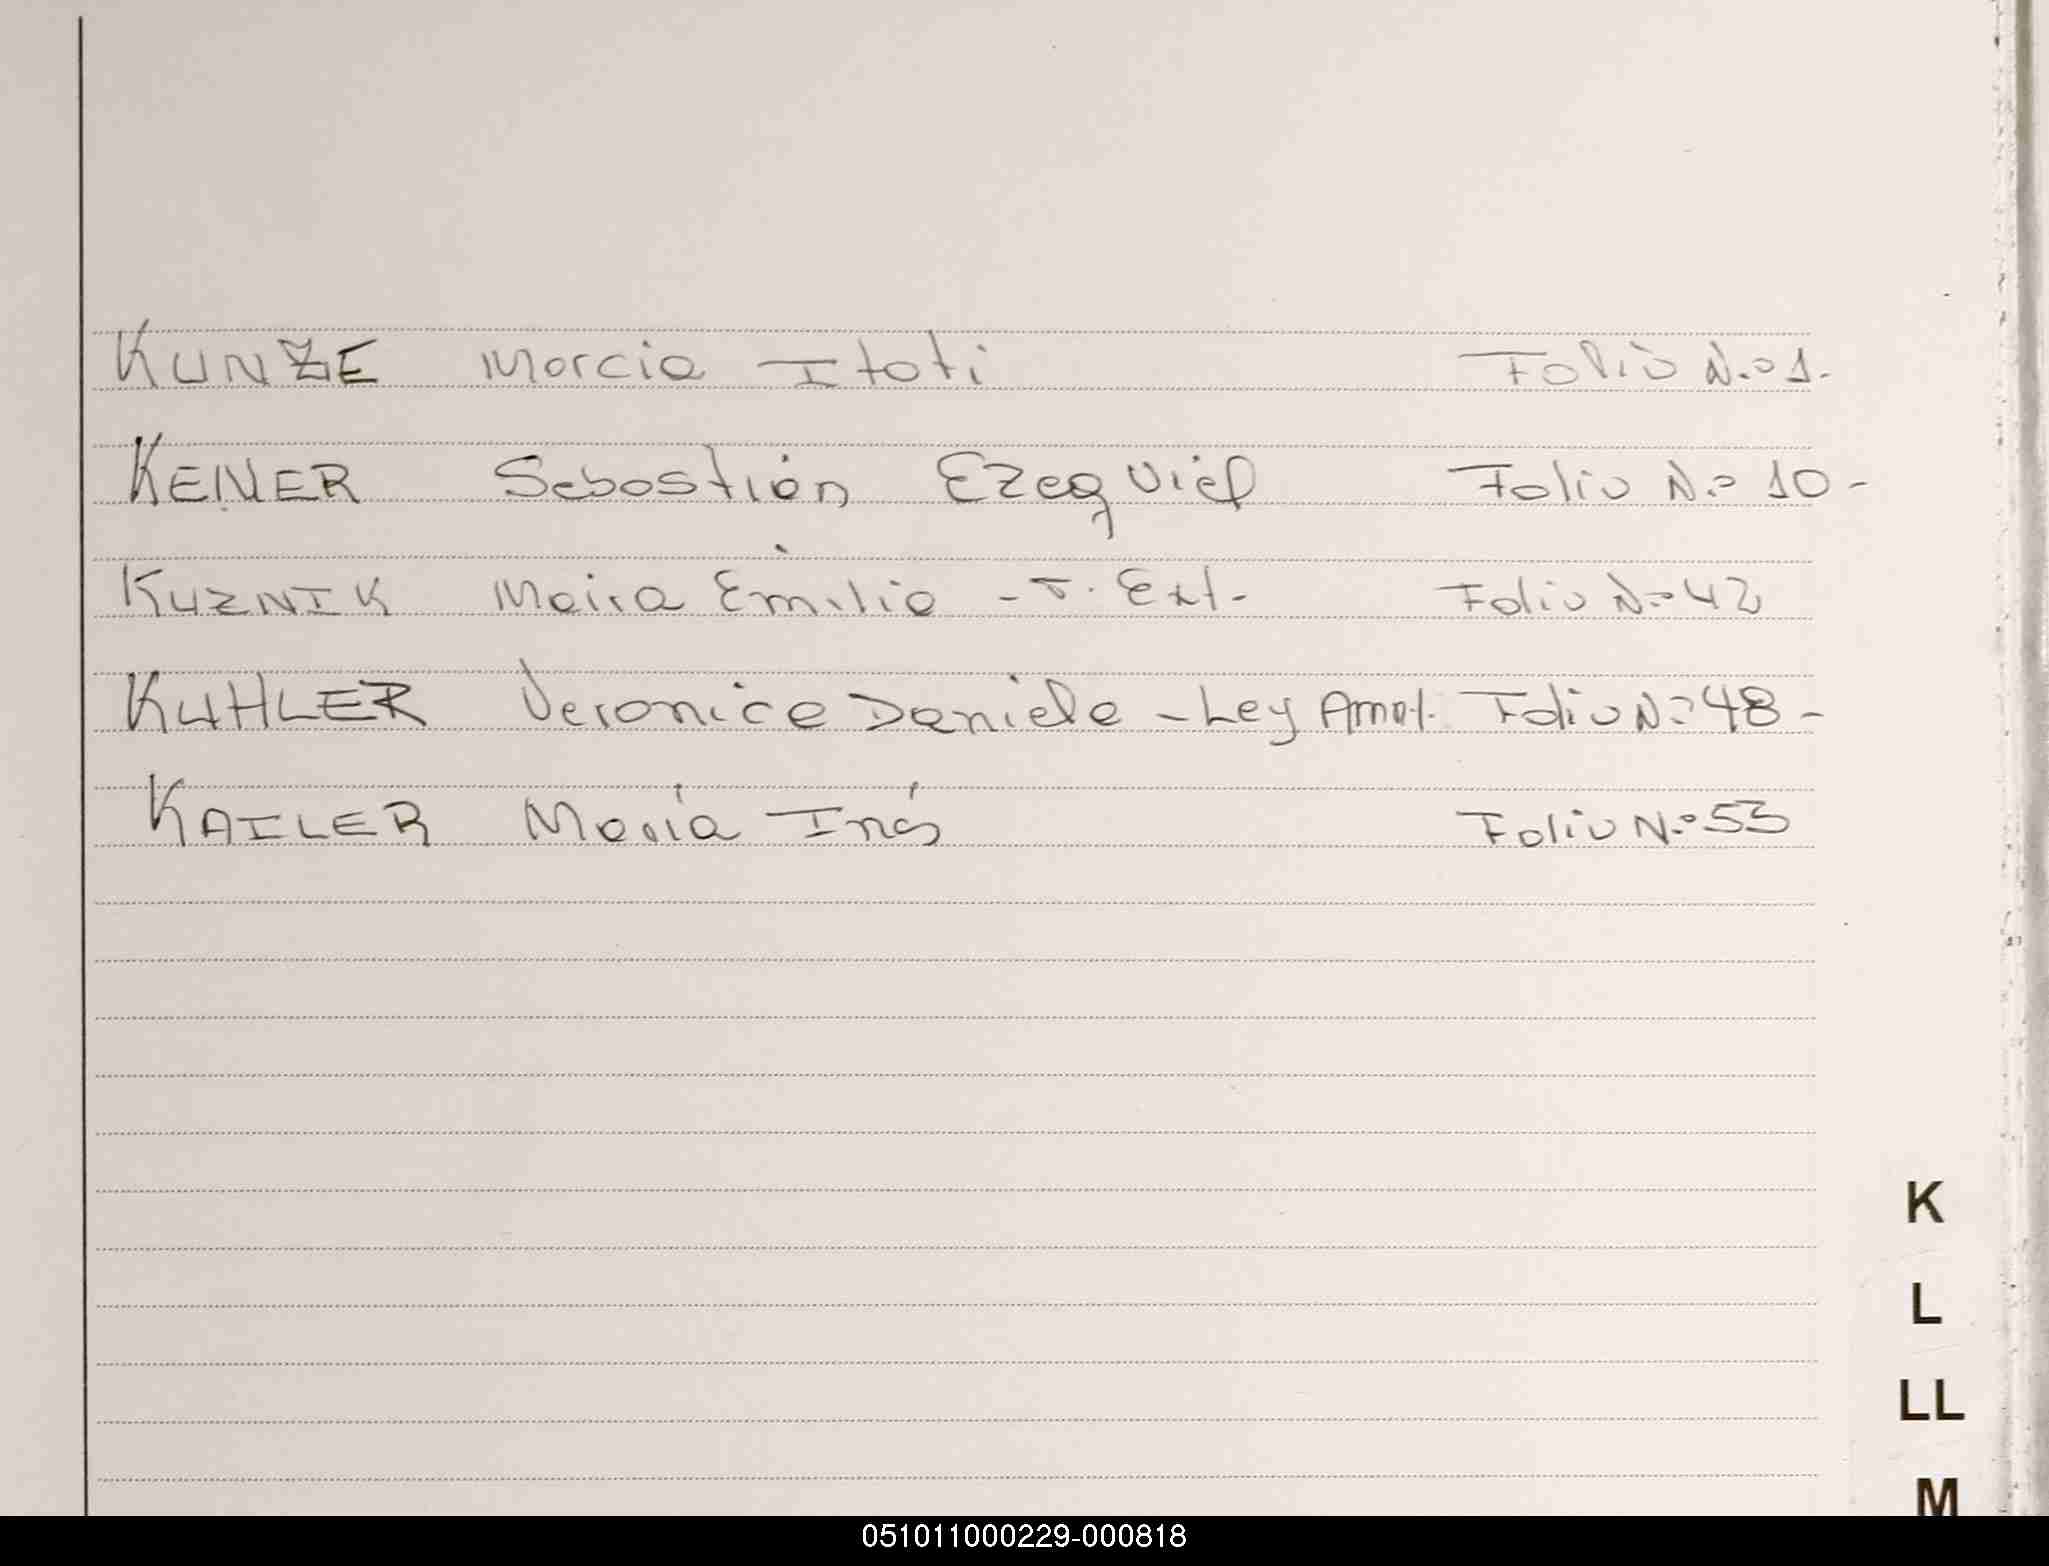 KUNZE Marcia Itati Folio N.º 1.
KENER Sebastián Ezequiel Folio N.º 10-
KUZNIK Maira Emilia - T. Ext- Folio N.º 42
KUHLER Veronica Daniela - Ley Amot. Folio N.º 48-
KAILER María Inés Folio N.º 53
K
L
LL
M
051011000229-000818